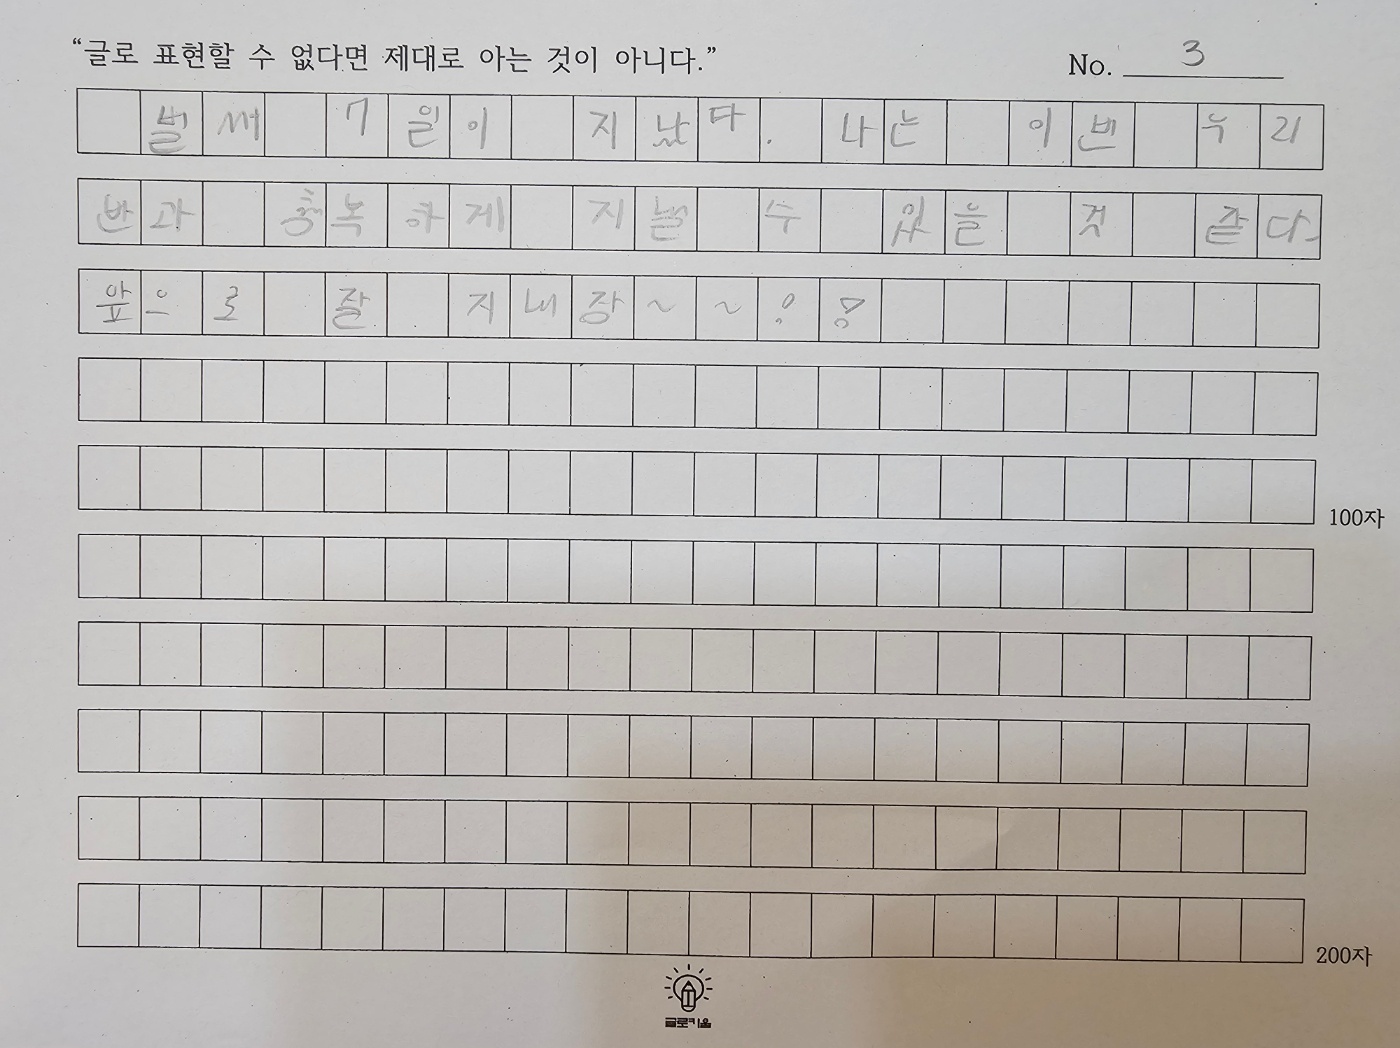 “글로 표현할 수 없다면 제대로 아는 것이 아니다.” No. 3
벌써 7일이 지났다. 나는 이번 누리
반과 행복하게 지낼 수 있을 것 같다.
앞으로 잘 지내장~~!!
100자
200자
글로키움